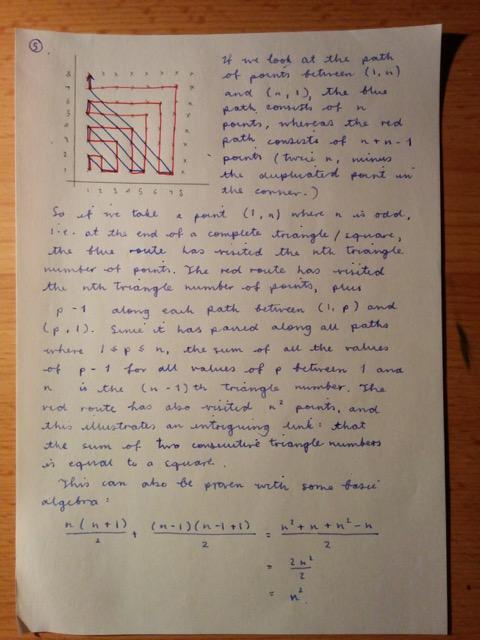 5
If we look at the path
of points between (1, n)
and (n, 1), the blue
path consists of n
points, whereas the red
path consists of n+n-1
points (twice n, minus
the duplicated point in
the corner.)
8
7
6
5
4
3
2
1
1 2 3 4 5 6 7 8
So if we take a point (1, n) where n is odd,
i.e. at the end of a complete triangle/square,
the blue route has visited the nth triangle
number of points. The red route has visited
the nth triangle number of points, plus
p-1 along each path between (1, p) and
(p, 1). Since it has passed along all paths
where 1 ≤ p ≤ n, the sum of all the values
of p-1 for all values of p between 1 and
n is the (n-1)th triangle number. The
red route has also visited n² points, and
this illustrates an intriguing link: that
the sum of two consecutive triangle numbers
is equal to a square.
This can also be proven with some basic
algebra:
n(n+1)/2 + (n-1)(n-1+1)/2 = n²+n+n²-n/2
= 2n²/2
= n².